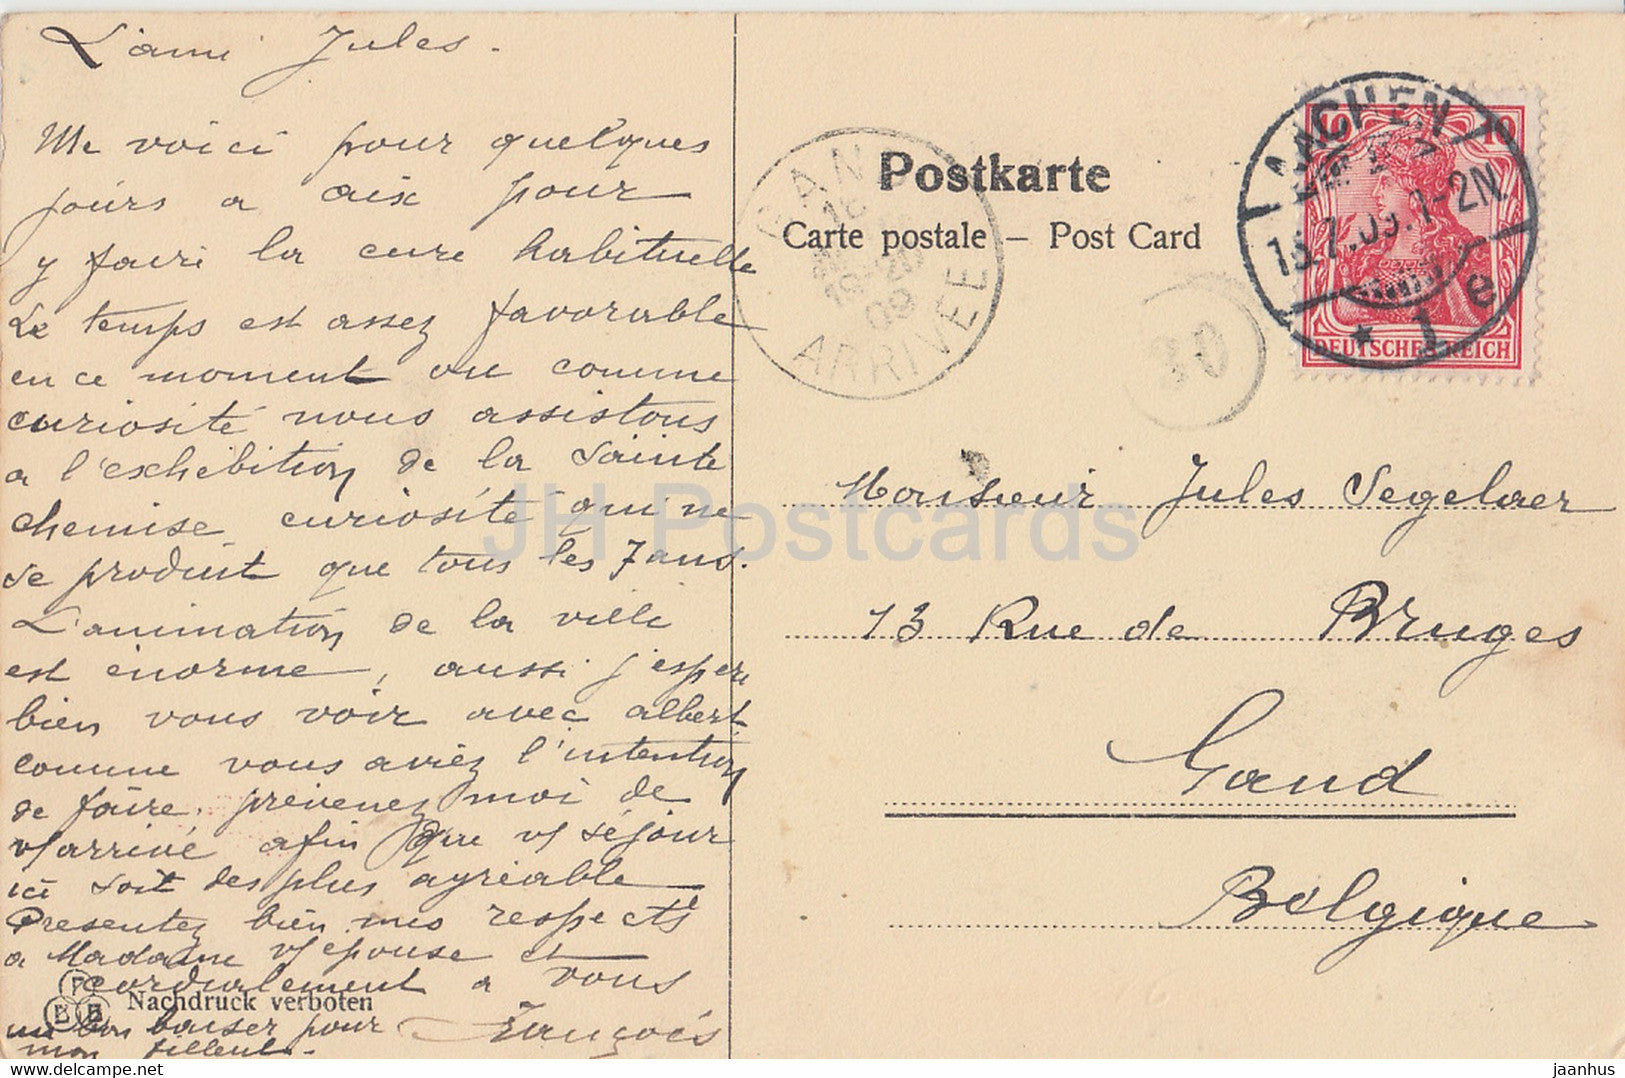 L'ami Jules.
Me voici pour quelques
jours a aix pour
y faire la cure habituelle
Le temps est assez favorable
en ce moment ou comme
curiosité nous assistons
a l'exhebition de la Sainte
chemise, curiosité qui ne
se produit que tous les 7 ans.
L'animation de la ville
est énorme, aussi j'espere
bien vous voir avec albert
comme vous aviez l'intention
de faire, prevenez moi de
v/arrivé afin que v/séjour
ici soit des plus agréable
Presentez bien mes respects
a Madame v/epouse et
cordialement a vous
un bon baiser pour François
mon filleul.
F
E B
Nachdruck verboten
Postkarte
Carte postale – Post Card
GAND
ARRIVEE
09
30
AACHEN
13.7.09.1-2N.
* 1 e
10 10
DEUTSCHES REICH
Monsieur Jules Segelaer
13 Rue de Bruges
Gand
Belgique
JH Postcards
jaanhus